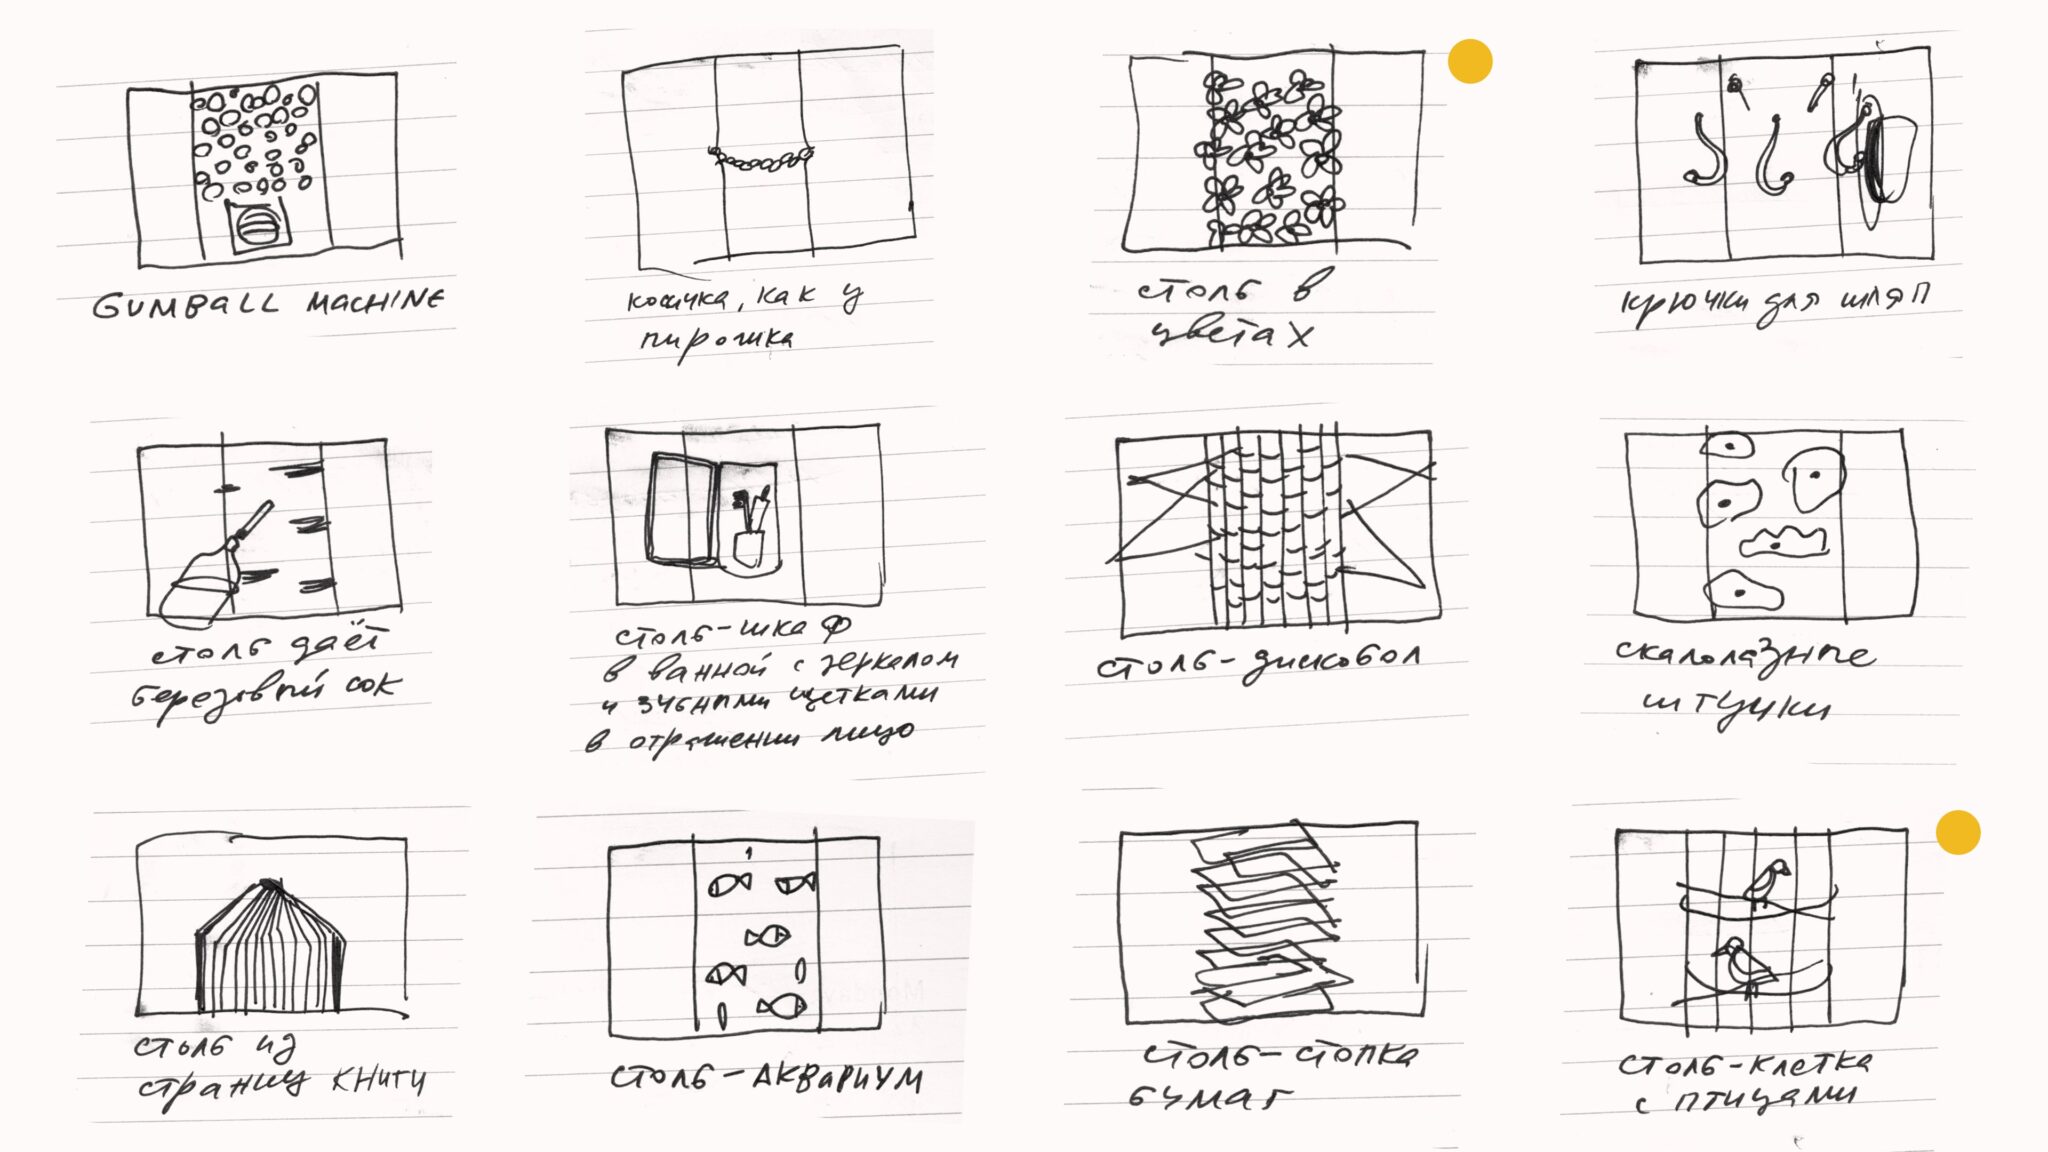 GUMBALL MACHINE
косичка, как у
пирожка
столб в
цветах
крючки для шляп
столб даёт
березовый сок
столб-шкаф
в ванной с зеркалом
и зубными щетками
в отражении лицо
столб-дискобол
скалолазные
штучки
столб из
страниц книги
столб-аквариум
столб-стопка
бумаг
столб-клетка
с птицами